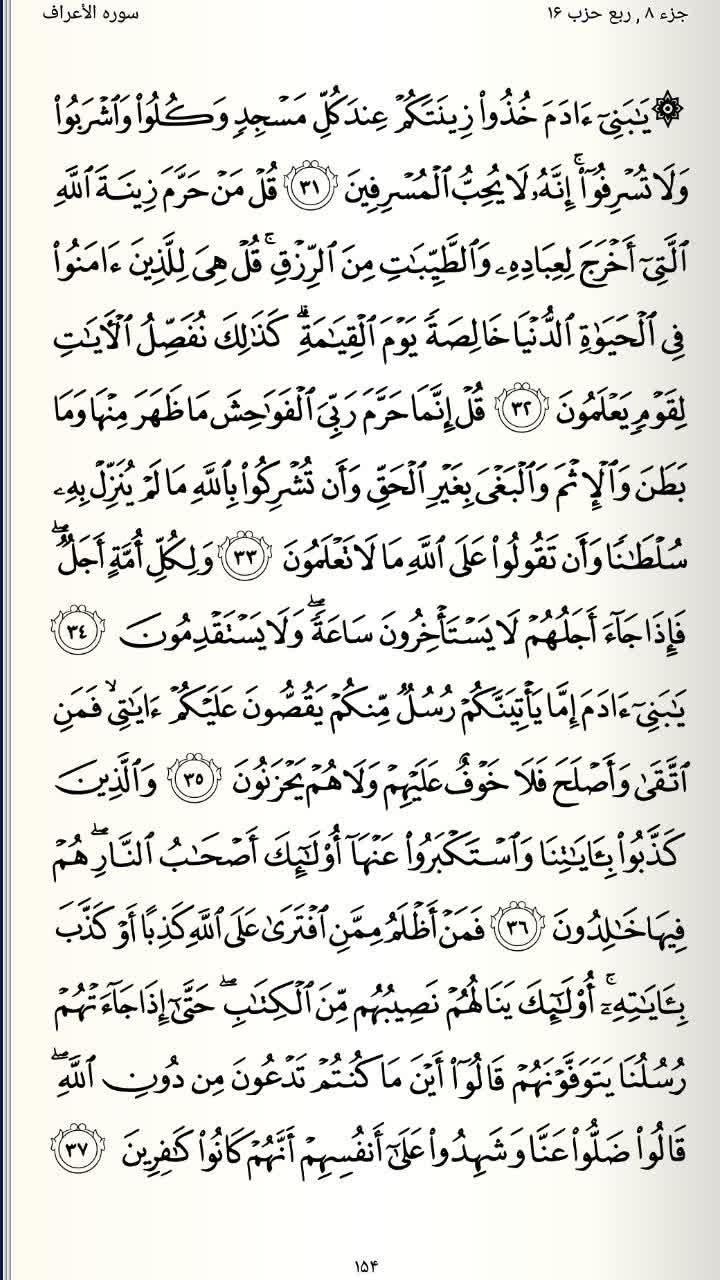 جزء ۸ , ربع حزب ۱۶
سوره الأعراف
۞ يَٰبَنِيٓ ءَادَمَ خُذُواْ زِينَتَكُمۡ عِندَ كُلِّ مَسۡجِدٖ وَكُلُواْ وَٱشۡرَبُواْ
وَلَا تُسۡرِفُوٓاْۚ إِنَّهُۥ لَا يُحِبُّ ٱلۡمُسۡرِفِينَ ٣١ قُلۡ مَنۡ حَرَّمَ زِينَةَ ٱللَّهِ
ٱلَّتِيٓ أَخۡرَجَ لِعِبَادِهِۦ وَٱلطَّيِّبَٰتِ مِنَ ٱلرِّزۡقِۚ قُلۡ هِيَ لِلَّذِينَ ءَامَنُواْ
فِي ٱلۡحَيَوٰةِ ٱلدُّنۡيَا خَالِصَةٗ يَوۡمَ ٱلۡقِيَٰمَةِۗ كَذَٰلِكَ نُفَصِّلُ ٱلۡأٓيَٰتِ
لِقَوۡمٖ يَعۡلَمُونَ ٣٢ قُلۡ إِنَّمَا حَرَّمَ رَبِّيَ ٱلۡفَوَٰحِشَ مَا ظَهَرَ مِنۡهَا وَمَا
بَطَنَ وَٱلۡإِثۡمَ وَٱلۡبَغۡيَ بِغَيۡرِ ٱلۡحَقِّ وَأَن تُشۡرِكُواْ بِٱللَّهِ مَا لَمۡ يُنَزِّلۡ بِهِۦ
سُلۡطَٰنٗا وَأَن تَقُولُواْ عَلَى ٱللَّهِ مَا لَا تَعۡلَمُونَ ٣٣ وَلِكُلِّ أُمَّةٍ أَجَلٞۖ
فَإِذَا جَآءَ أَجَلُهُمۡ لَا يَسۡتَأۡخِرُونَ سَاعَةٗ وَلَا يَسۡتَقۡدِمُونَ ٣٤
يَٰبَنِيٓ ءَادَمَ إِمَّا يَأۡتِيَنَّكُمۡ رُسُلٞ مِّنكُمۡ يَقُصُّونَ عَلَيۡكُمۡ ءَايَٰتِي ۙ فَمَنِ
ٱتَّقَىٰ وَأَصۡلَحَ فَلَا خَوۡفٌ عَلَيۡهِمۡ وَلَا هُمۡ يَحۡزَنُونَ ٣٥ وَٱلَّذِينَ
كَذَّبُواْ بِـَٔايَٰتِنَا وَٱسۡتَكۡبَرُواْ عَنۡهَآ أُوْلَٰٓئِكَ أَصۡحَٰبُ ٱلنَّارِۖ هُمۡ
فِيهَا خَٰلِدُونَ ٣٦ فَمَنۡ أَظۡلَمُ مِمَّنِ ٱفۡتَرَىٰ عَلَى ٱللَّهِ كَذِبًا أَوۡ كَذَّبَ
بِـَٔايَٰتِهِۦٓۚ أُوْلَٰٓئِكَ يَنَالُهُمۡ نَصِيبُهُم مِّنَ ٱلۡكِتَٰبِۖ حَتَّىٰٓ إِذَا جَآءَتۡهُمۡ
رُسُلُنَا يَتَوَفَّوۡنَهُمۡ قَالُوٓاْ أَيۡنَ مَا كُنتُمۡ تَدۡعُونَ مِن دُونِ ٱللَّهِۖ
قَالُواْ ضَلُّواْ عَنَّا وَشَهِدُواْ عَلَىٰٓ أَنفُسِهِمۡ أَنَّهُمۡ كَانُواْ كَٰفِرِينَ ٣٧
۱۵۴